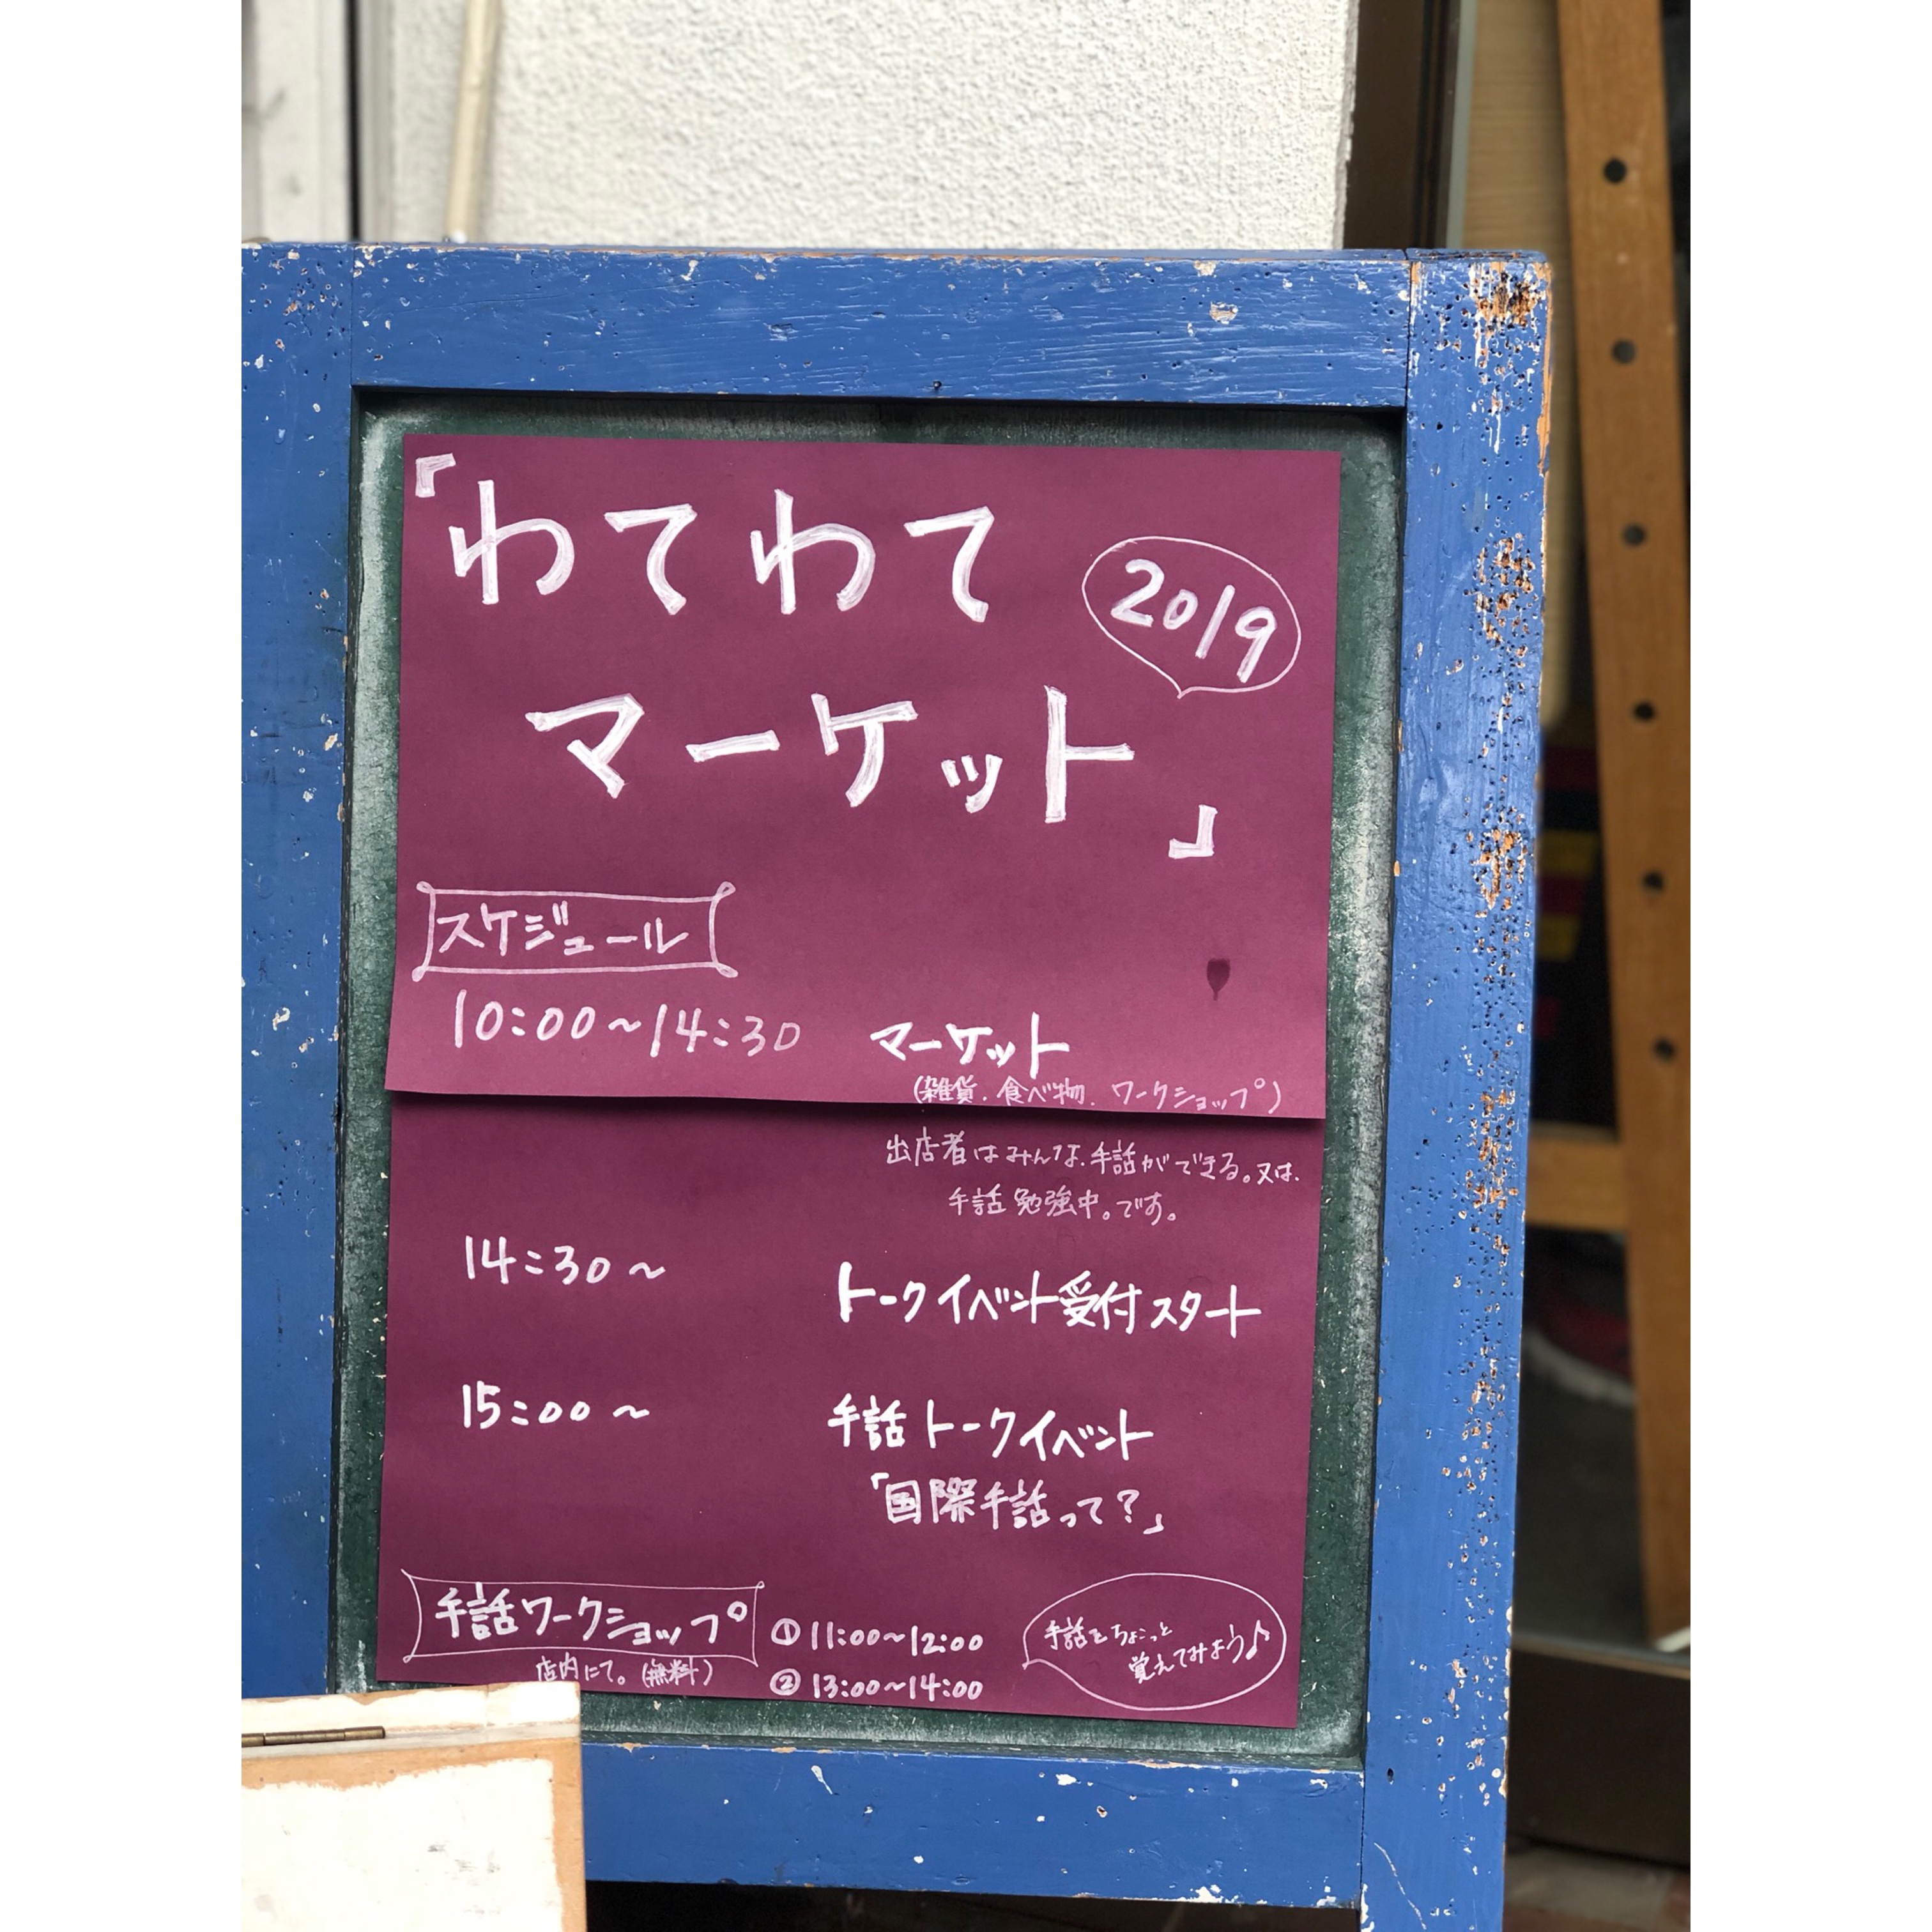 「わてわて
2019
マーケット」
スケジュール
10:00～14:30 マーケット
(雑貨.食べ物.ワークショップ)
出店者はみんな.手話ができる。又は.
手話勉強中。です。
14:30～ トークイベント受付スタート
15:00～ 手話トークイベント
「国際手話って?」
手話ワークショップ
店内にて。(無料)
①11:00～12:00
②13:00～14:00
手話をちょこっと
覚えてみよう♪